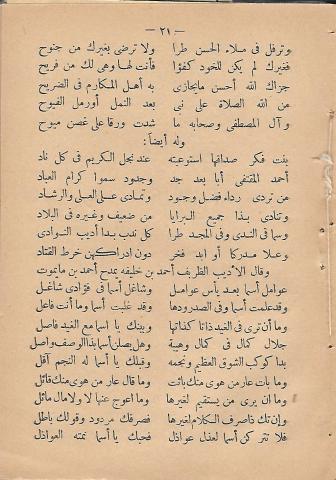 — ٢١ —
وترفل في ملاء الحسن طرا ولا ترضى بغيرك من جنوح
فغيرك لم يكن للخود كفؤا فأنت لها وهي لك من فريح
جزاك الله أحسن مايجازى به أهل المكارم في الضريح
من الله الصلاة على نبي بعد النمل أو رمل الفيوح
وآل المصطفى وصحابه ما شدت ورقا على غصن مبوح
وله أيضاً:
بنت فكر صداقها استوعبته عند نجل الكريم في كل ناد
أحمد المقتفى أبا بعد جد وجدود سموا كرام العباد
من تردى رداء فضل وجود وتمادى على العلى والرشاد
وتنادى بذا جميع البرايا من ضعيف وغيره في البلاد
وسما في الندى وفي المجد طرا كل ندب بدا أديب النوادى
وعلا مدركا أو ابد فخر دون ادراكهن خرط القتاد
وقال الأديب الظريف أحمد بن خليفه يمدح أحمد بن مانموت
عوامل أسما بعد يأس عوامل وشاغل أسما في فؤادى شاغل
وقد علمت أسما وفي الصدر ودها وقد غلبت أسما وما أنت فاعل
وما أن ترى في الغيد ذاتا كذاتها وبينك يا اسما مع الغيد فاصل
جلال كمال في كمال وهيبة وهل يصلن أسما بذا الوصف واصل
بدا كوكب الشوق العظيم ونجمه وقبلك يا أسما له النجم آفل
وما بات عار من هوى منك بائت وما قال عار من هوى منك قائل
وما ان يرى من يستقيم لغيرها وما اعوج عنها لا ولا مال مائل
وإن تك ذا صرف الكلام لغيرها فصرفك مردود وقولك باطل
فلا تتركن أسما لعذل عواذل فحبك يا أسما نمته العواذل